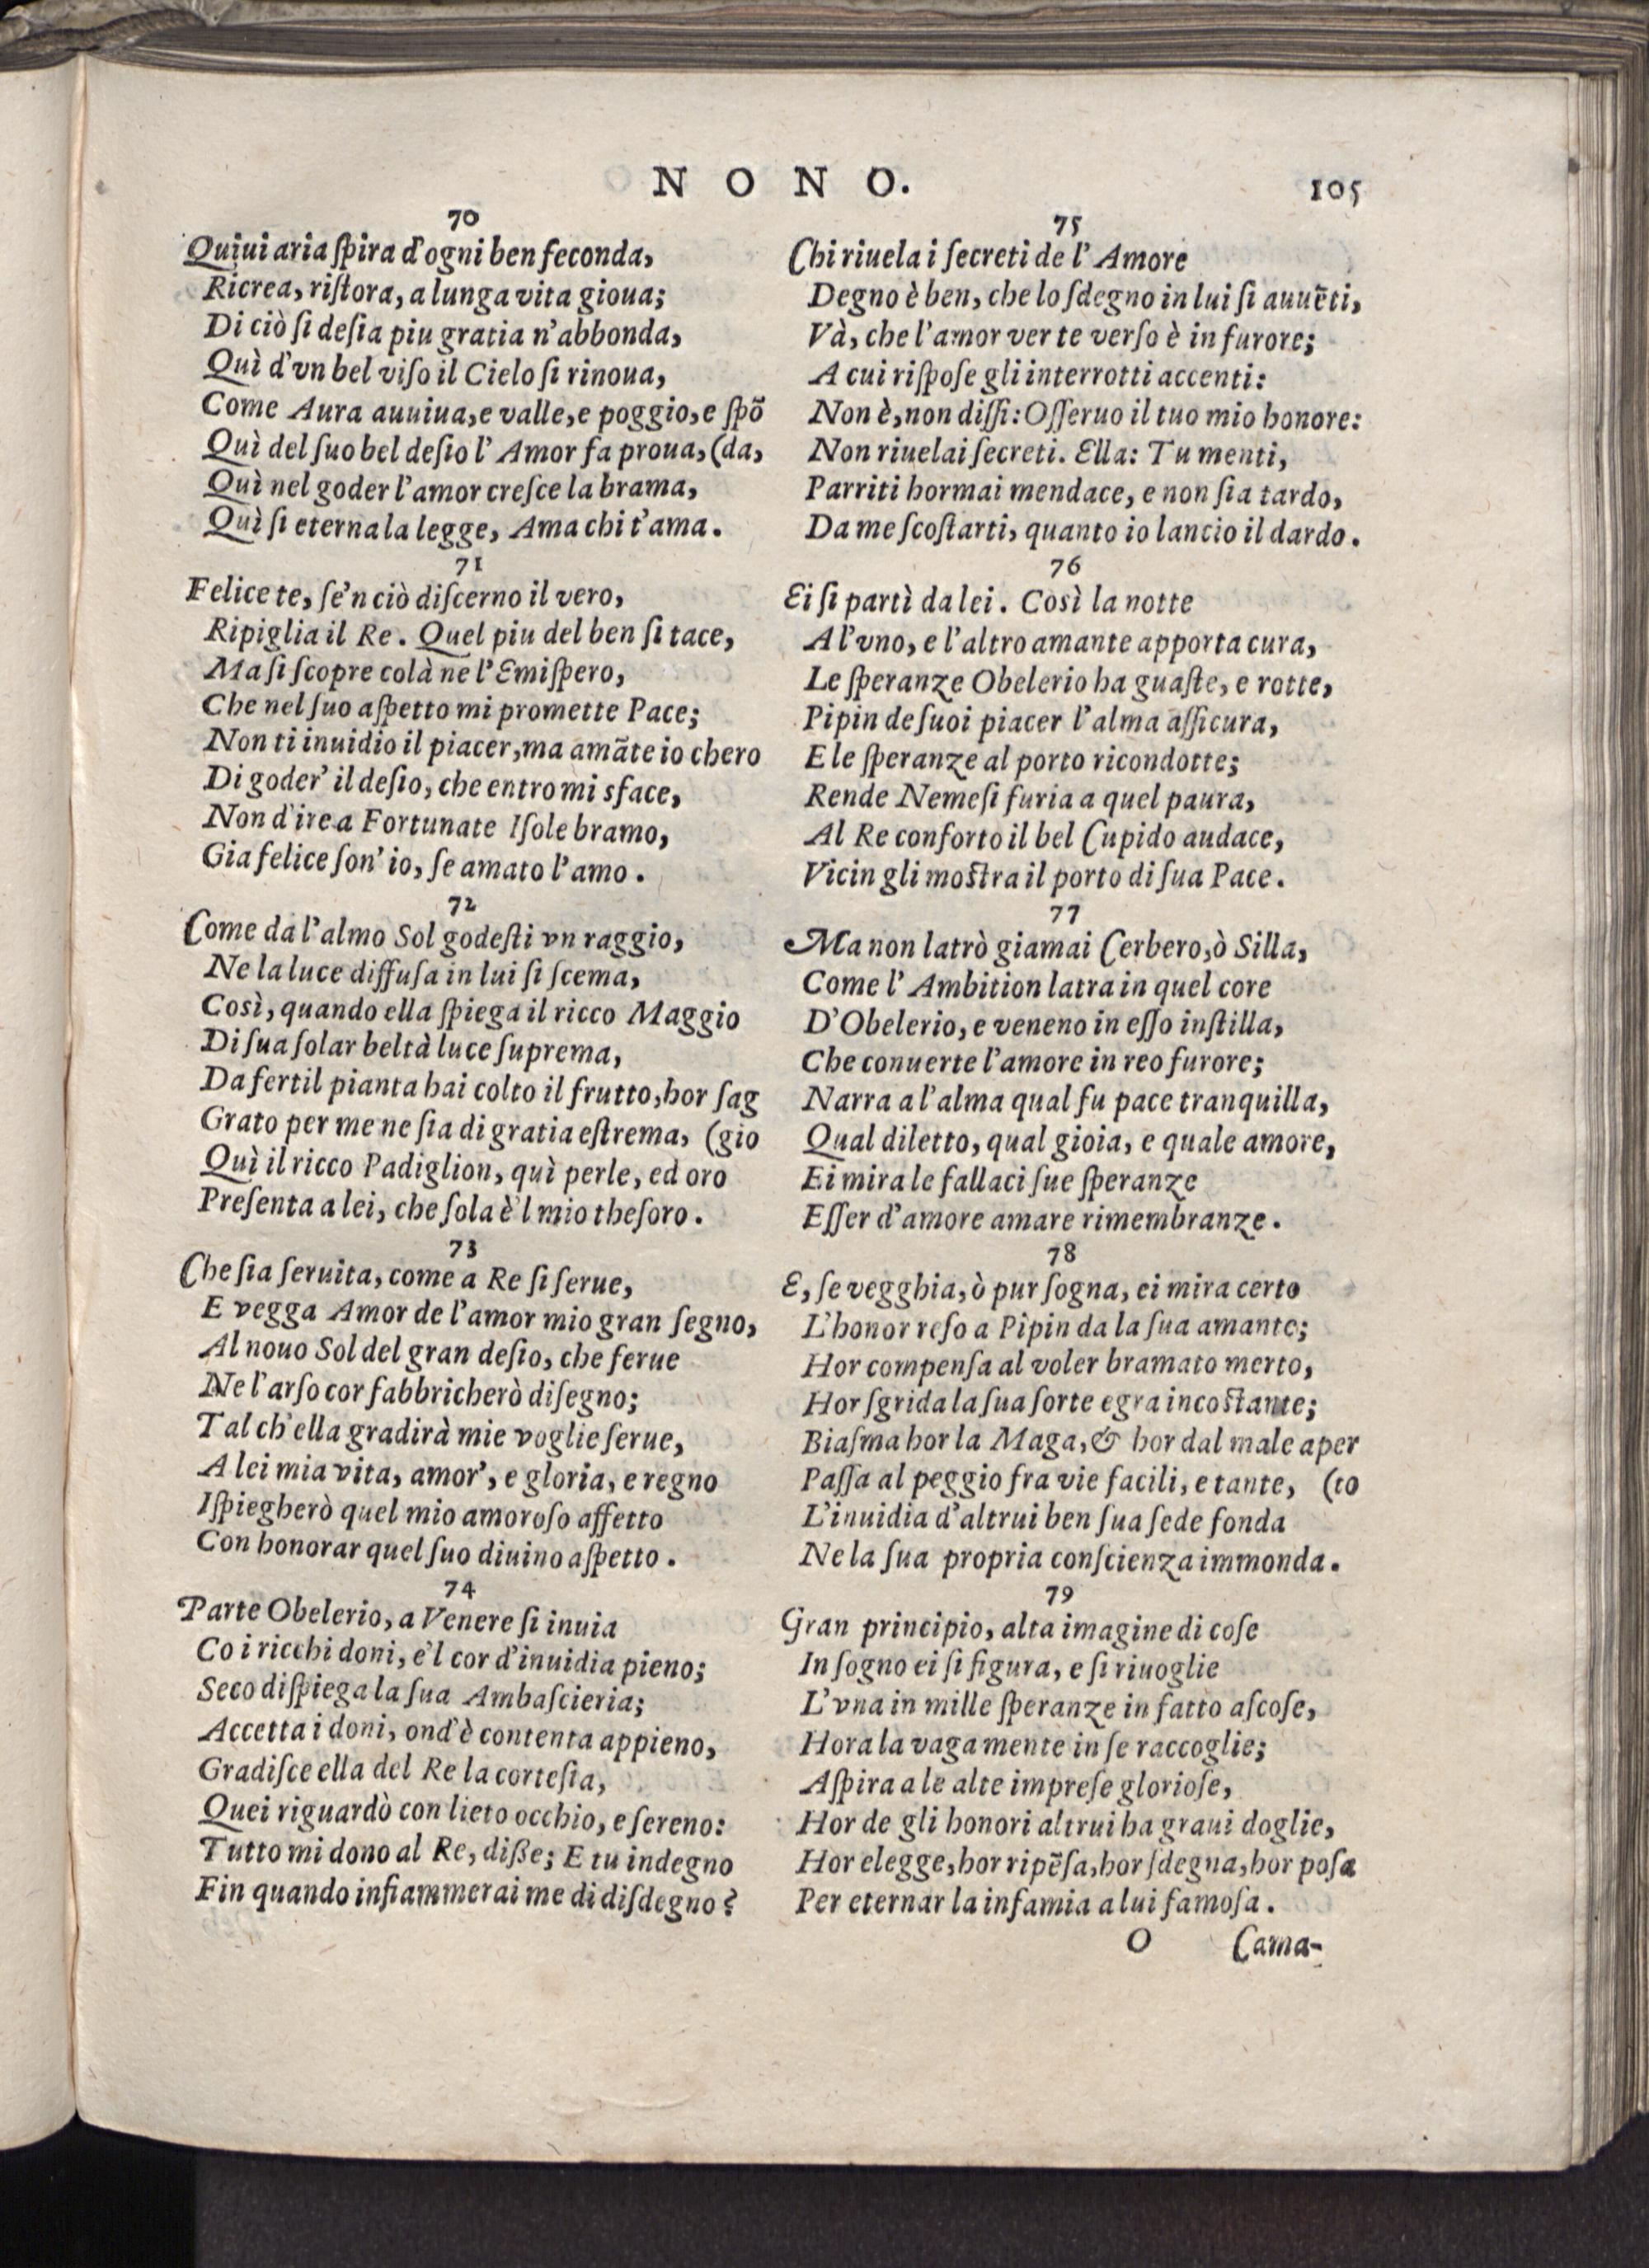 NONO.
105
70
Quiui aria ſpira d'ogni ben feconda,
Ricrea, riſtora, a lunga vita gioua;
Di ciò ſi deſia piu gratia n'abbonda,
Quì d'vn bel viſo il Cielo ſi rinoua,
Come Aura auuiua, e valle, e poggio, e ſpō
Quì del ſuo bel deſio l'Amor fa proua, (da,
Quì nel goder l'amor creſce la brama,
Quì ſi eterna la legge, Ama chi t'ama.
71
Felice te, ſe'n ciò diſcerno il vero,
Ripiglia il Re. Quel piu del ben ſi tace,
Ma ſi ſcopre colà ne l'Emiſpero,
Che nel ſuo aſpetto mi promette Pace;
Non ti inuidio il piacer, ma amāte io chero
Di goder' il deſio, che entro mi sface,
Non d'ire a Fortunate Iſole bramo,
Gia felice ſon' io, ſe amato l'amo.
72
Come da l'almo Sol godeſti vn raggio,
Ne la luce diffuſa in lui ſi ſcema,
Così, quando ella ſpiega il ricco Maggio
Di ſua ſolar beltà luce ſuprema,
Da fertil pianta hai colto il frutto, hor ſag
Grato per me ne ſia di gratia eſtrema, (gio
Quì il ricco Padiglion, quì perle, ed oro
Preſenta a lei, che ſola è'l mio theſoro.
73
Che ſia ſeruita, come a Re ſi ſerue,
E vegga Amor de l'amor mio gran ſegno,
Al nouo Sol del gran deſio, che ferue
Ne l'arſo cor fabbricherò diſegno;
Tal ch'ella gradirà mie voglie ſerue,
A lei mia vita, amor', e gloria, e regno
Iſpiegherò quel mio amoroſo affetto
Con honorar quel ſuo diuino aſpetto.
74
Parte Obelerio, a Venere ſi inuia
Co i ricchi doni, e'l cor d'inuidia pieno;
Seco diſpiega la ſua Ambaſcieria;
Accetta i doni, ond'è contenta appieno,
Gradiſce ella del Re la corteſia,
Quei riguardò con lieto occhio, e ſereno:
Tutto mi dono al Re, diße; E tu indegno
Fin quando infiammerai me di diſdegno?
75
Chi riuela i ſecreti de l'Amore
Degno è ben, che lo ſdegno in lui ſi auuēti,
Và, che l'amor ver te verſo è in furore;
A cui riſpoſe gli interrotti accenti:
Non è, non diſſi: Oſſeruo il tuo mio honore:
Non riuelai ſecreti. Ella: Tu menti,
Parriti hormai mendace, e non ſia tardo,
Da me ſcoſtarti, quanto io lancio il dardo.
76
Ei ſi partì da lei. Così la notte
A l'vno, e l'altro amante apporta cura,
Le ſperanze Obelerio ha guaſte, e rotte,
Pipin de ſuoi piacer l'alma aſſicura,
E le ſperanze al porto ricondotte;
Rende Nemeſi furia a quel paura,
Al Re conforto il bel Cupido audace,
Vicin gli moſtra il porto di ſua Pace.
77
Ma non latrò giamai Cerbero, ò Silla,
Come l'Ambition latra in quel core
D'Obelerio, e veneno in eſſo inſtilla,
Che conuerte l'amore in reo furore;
Narra a l'alma qual fu pace tranquilla,
Qual diletto, qual gioia, e quale amore,
Ei mira le fallaci ſue ſperanze
Eſſer d'amore amare rimembranze.
78
E, ſe vegghia, ò pur ſogna, ei mira certo
L'honor reſo a Pipin da la ſua amante;
Hor compenſa al voler bramato merto,
Hor ſgrida la ſua ſorte egra incoſtante;
Biaſma hor la Maga, & hor dal male aper
Paſſa al peggio fra vie facili, e tante, (to
L'inuidia d'altrui ben ſua ſede fonda
Ne la ſua propria conſcienza immonda.
79
Gran principio, alta imagine di coſe
In ſogno ei ſi figura, e ſi riuoglie
L'vna in mille ſperanze in fatto aſcoſe,
Hora la vaga mente in ſe raccoglie;
Aſpira a le alte impreſe glorioſe,
Hor de gli honori altrui ha graui doglie,
Hor elegge, hor ripēſa, hor ſdegna, hor poſa
Per eternar la infamia a lui famoſa.
O Cama-